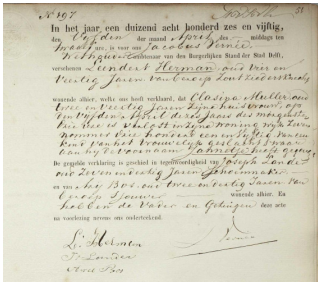 No 197
In het jaar een duizend acht honderd zes en vijftig,
den vijfden der maand April des middags ten
ure, is voor ons Jacobus
Ambtenaar van den Burgerlijken Stand der Stad Delft,
verschenen Leendert Herman oud vier en
Veertig Jaren van beroep Zoutziedersknecht
wonende alhier, welke ons heeft verklaard, dat Clasina Muller oud
drie en Veertig Jaren Zijne huisvrouw, op
den vijfden April dezes Jaars des morgens ten
vier ure is in Zijne Woning wijk Zeven
nommer vier honderd een en vijftig van een
kind van het vrouwelijk geslacht, waar
aan hij de voornaam Jannetje heeft gegeven
De gegelde verklaring is geschied in tegenwoordigheid van Joseph Lander
oud Zeven en Jaren Schoenmaker
en van Arij Bos, oud twee en Jaren van
beroep wonende alhier. En
hebben de Vader en Getuigen deze acte
na voorlezing nevens ons onderteekend.
L. Herman
Js Lander
Arie Bos